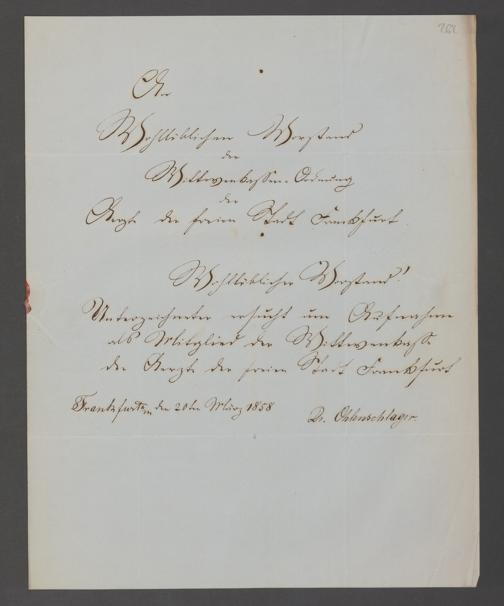 262
An
Wohllöblichen Vorstand
der
Wittwenkassen-Ordnung
der
Aerzte der freien Stadt Frankfurt.
Wohllöblicher Vorstand!
Unterzeichneter ersucht um Aufnahme
als Mitglied der Wittwenkasse
der Aerzte der freien Stadt Frankfurt
den 20ten März 1858
Dr. Ohlenschlager.